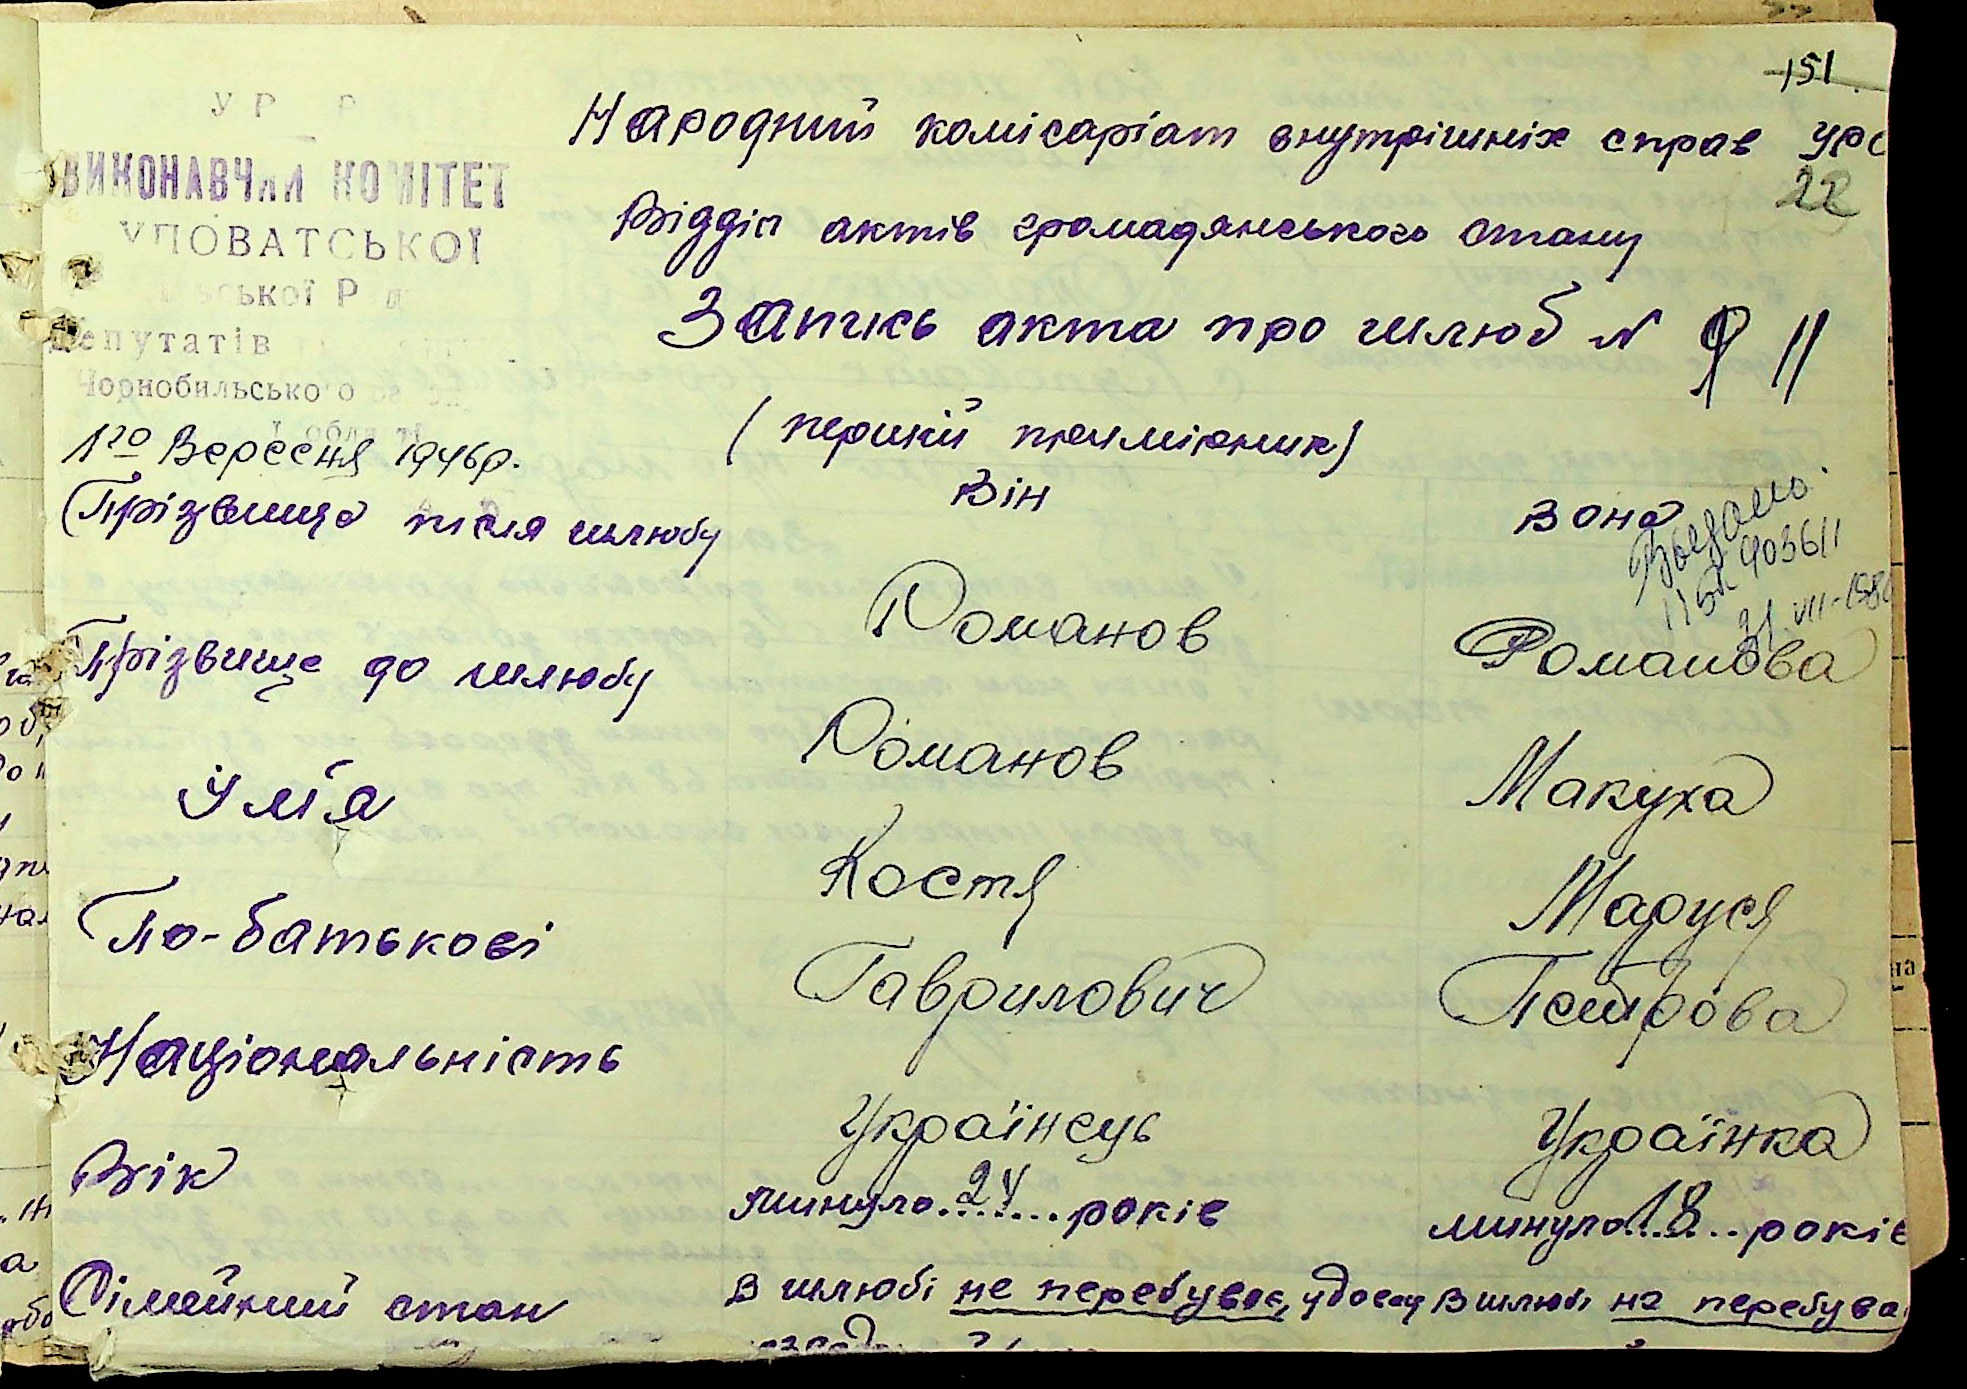 151
УР Р
ВИКОНАВЧИЙ КОМІТЕТ
УПОВАТСЬКОЇ
ської Р
депутатів
Чорнобильського
області
Народний комісаріат внутрішніх справ УРС
22
Відділ актів громадянського стану
Запись акта про шлюб N 9 11
(перший примірник)
1го Вересня 1946р.
Він Вона
Выдано
403611
31.VII-198
(Прізвище після шлюбу Романов Романова
Прізвище до шлюбу Романов Макуха
Ім'я Костя Маруся
По-батькові Гаврилович Петрова
Національність Українець Українка
Вік минуло 24 років минуло 18 років
Сімейний стан в шлюбі не перебував, удовец в шлюбі не перебува